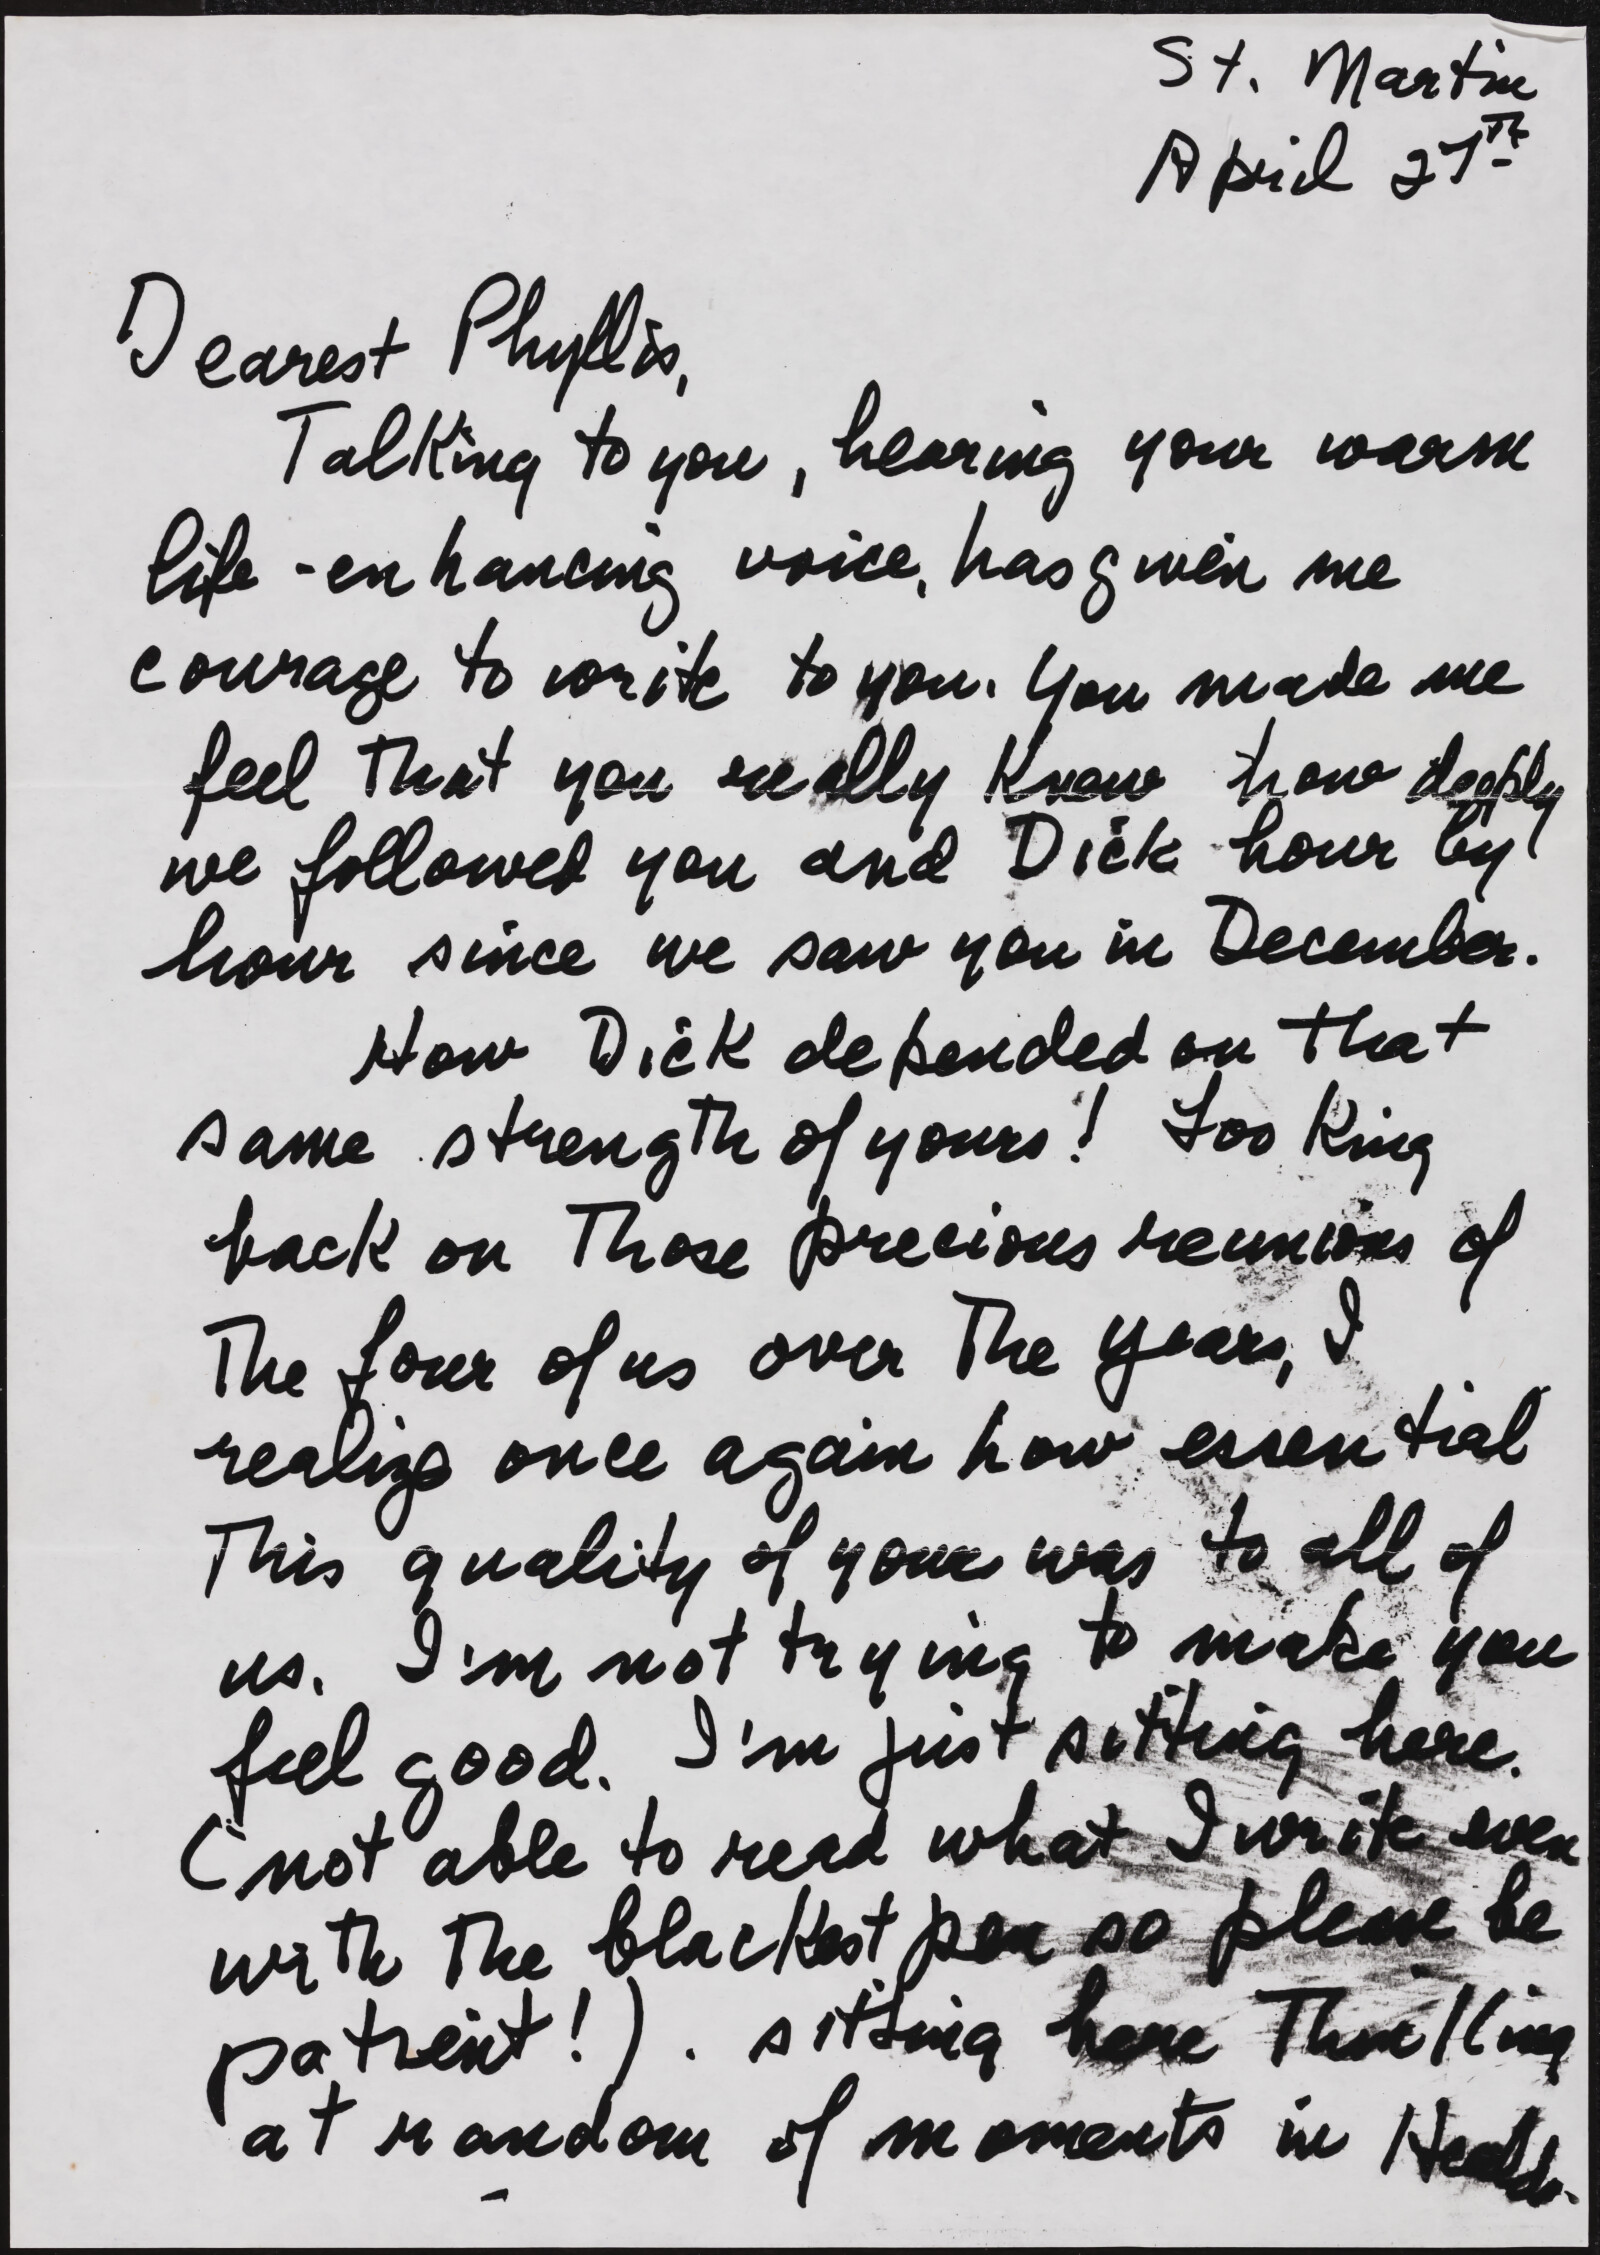 St. Martin
April 27th
Dearest Phyllis,
Talking to you, hearing your warm
life-enhancing voice, has given me
courage to write to you. You made me
feel that you really know how deeply
we followed you and Dick hour by
hour since we saw you in December.
How Dick depended on that
same strength of yours! Looking
back on those precious reunions of
the four of us over the years, I
realize once again how essential
this quality of yours was to all of
us. I'm not trying to make you
feel good. I'm just sitting here.
(not able to read what I write even
with the blackest pen so please be
patient!). sitting here
at random of moments in